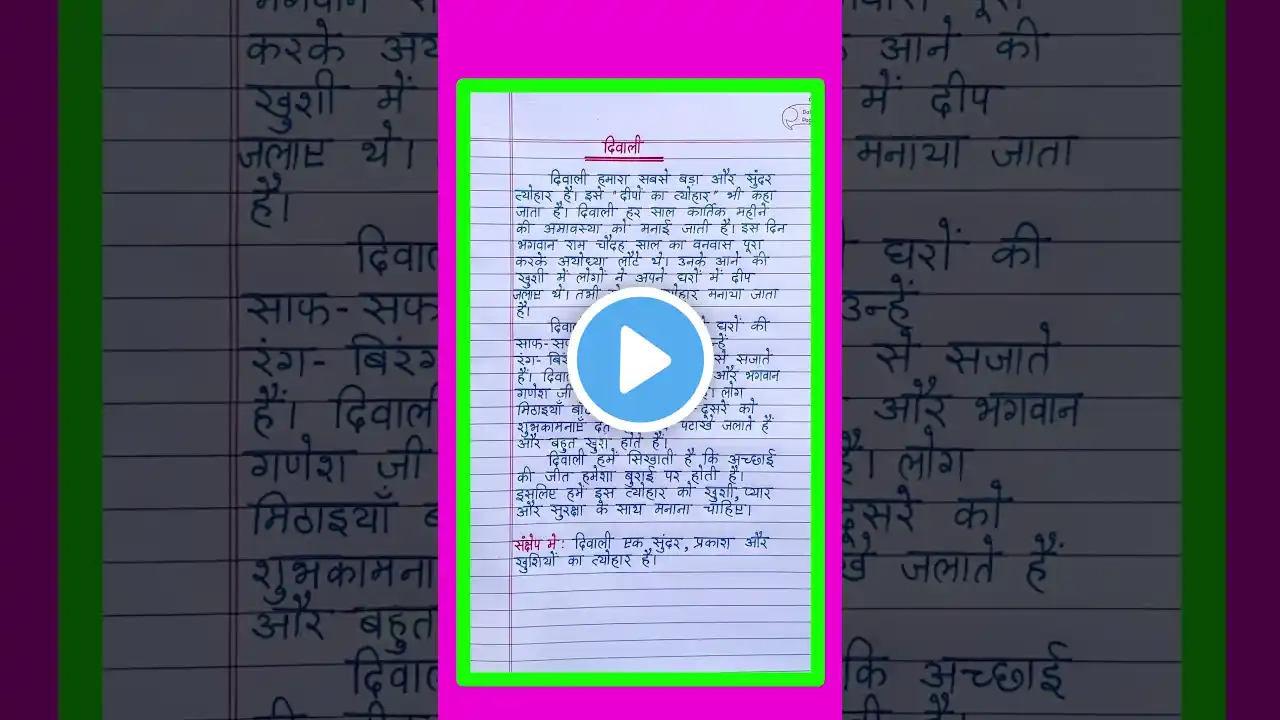 दिवाली
दिवाली हमारा सबसे बड़ा और सुंदर
त्योहार है। इसे "दीपों का त्योहार" भी कहा
जाता है। दिवाली हर साल कार्तिक महीने
की अमावस्या को मनाई जाती है। इस दिन
भगवान राम चौदह साल का वनवास पूरा
करके अयोध्या लौटे थे। उनके आने की
खुशी में लोगों ने अपने घरों में दीप
जलाए थे। तभी त्योहार मनाया जाता
है।
घरों की
साफ-
रंग- से सजाते
हैं। और भगवान
गणेश जी लोग
मिठाइयाँ दूसरे को
शुभकामनाएँ देते पटाखे जलाते हैं
और बहुत खुश होते हैं।
दिवाली हमें सिखाती है कि अच्छाई
की जीत हमेशा बुराई पर होती है।
इसलिए हमें इस त्योहार को खुशी, प्यार
और सुरक्षा के साथ मनाना चाहिए।
संक्षेप में : दिवाली एक सुंदर, प्रकाश और
खुशियों का त्योहार है।